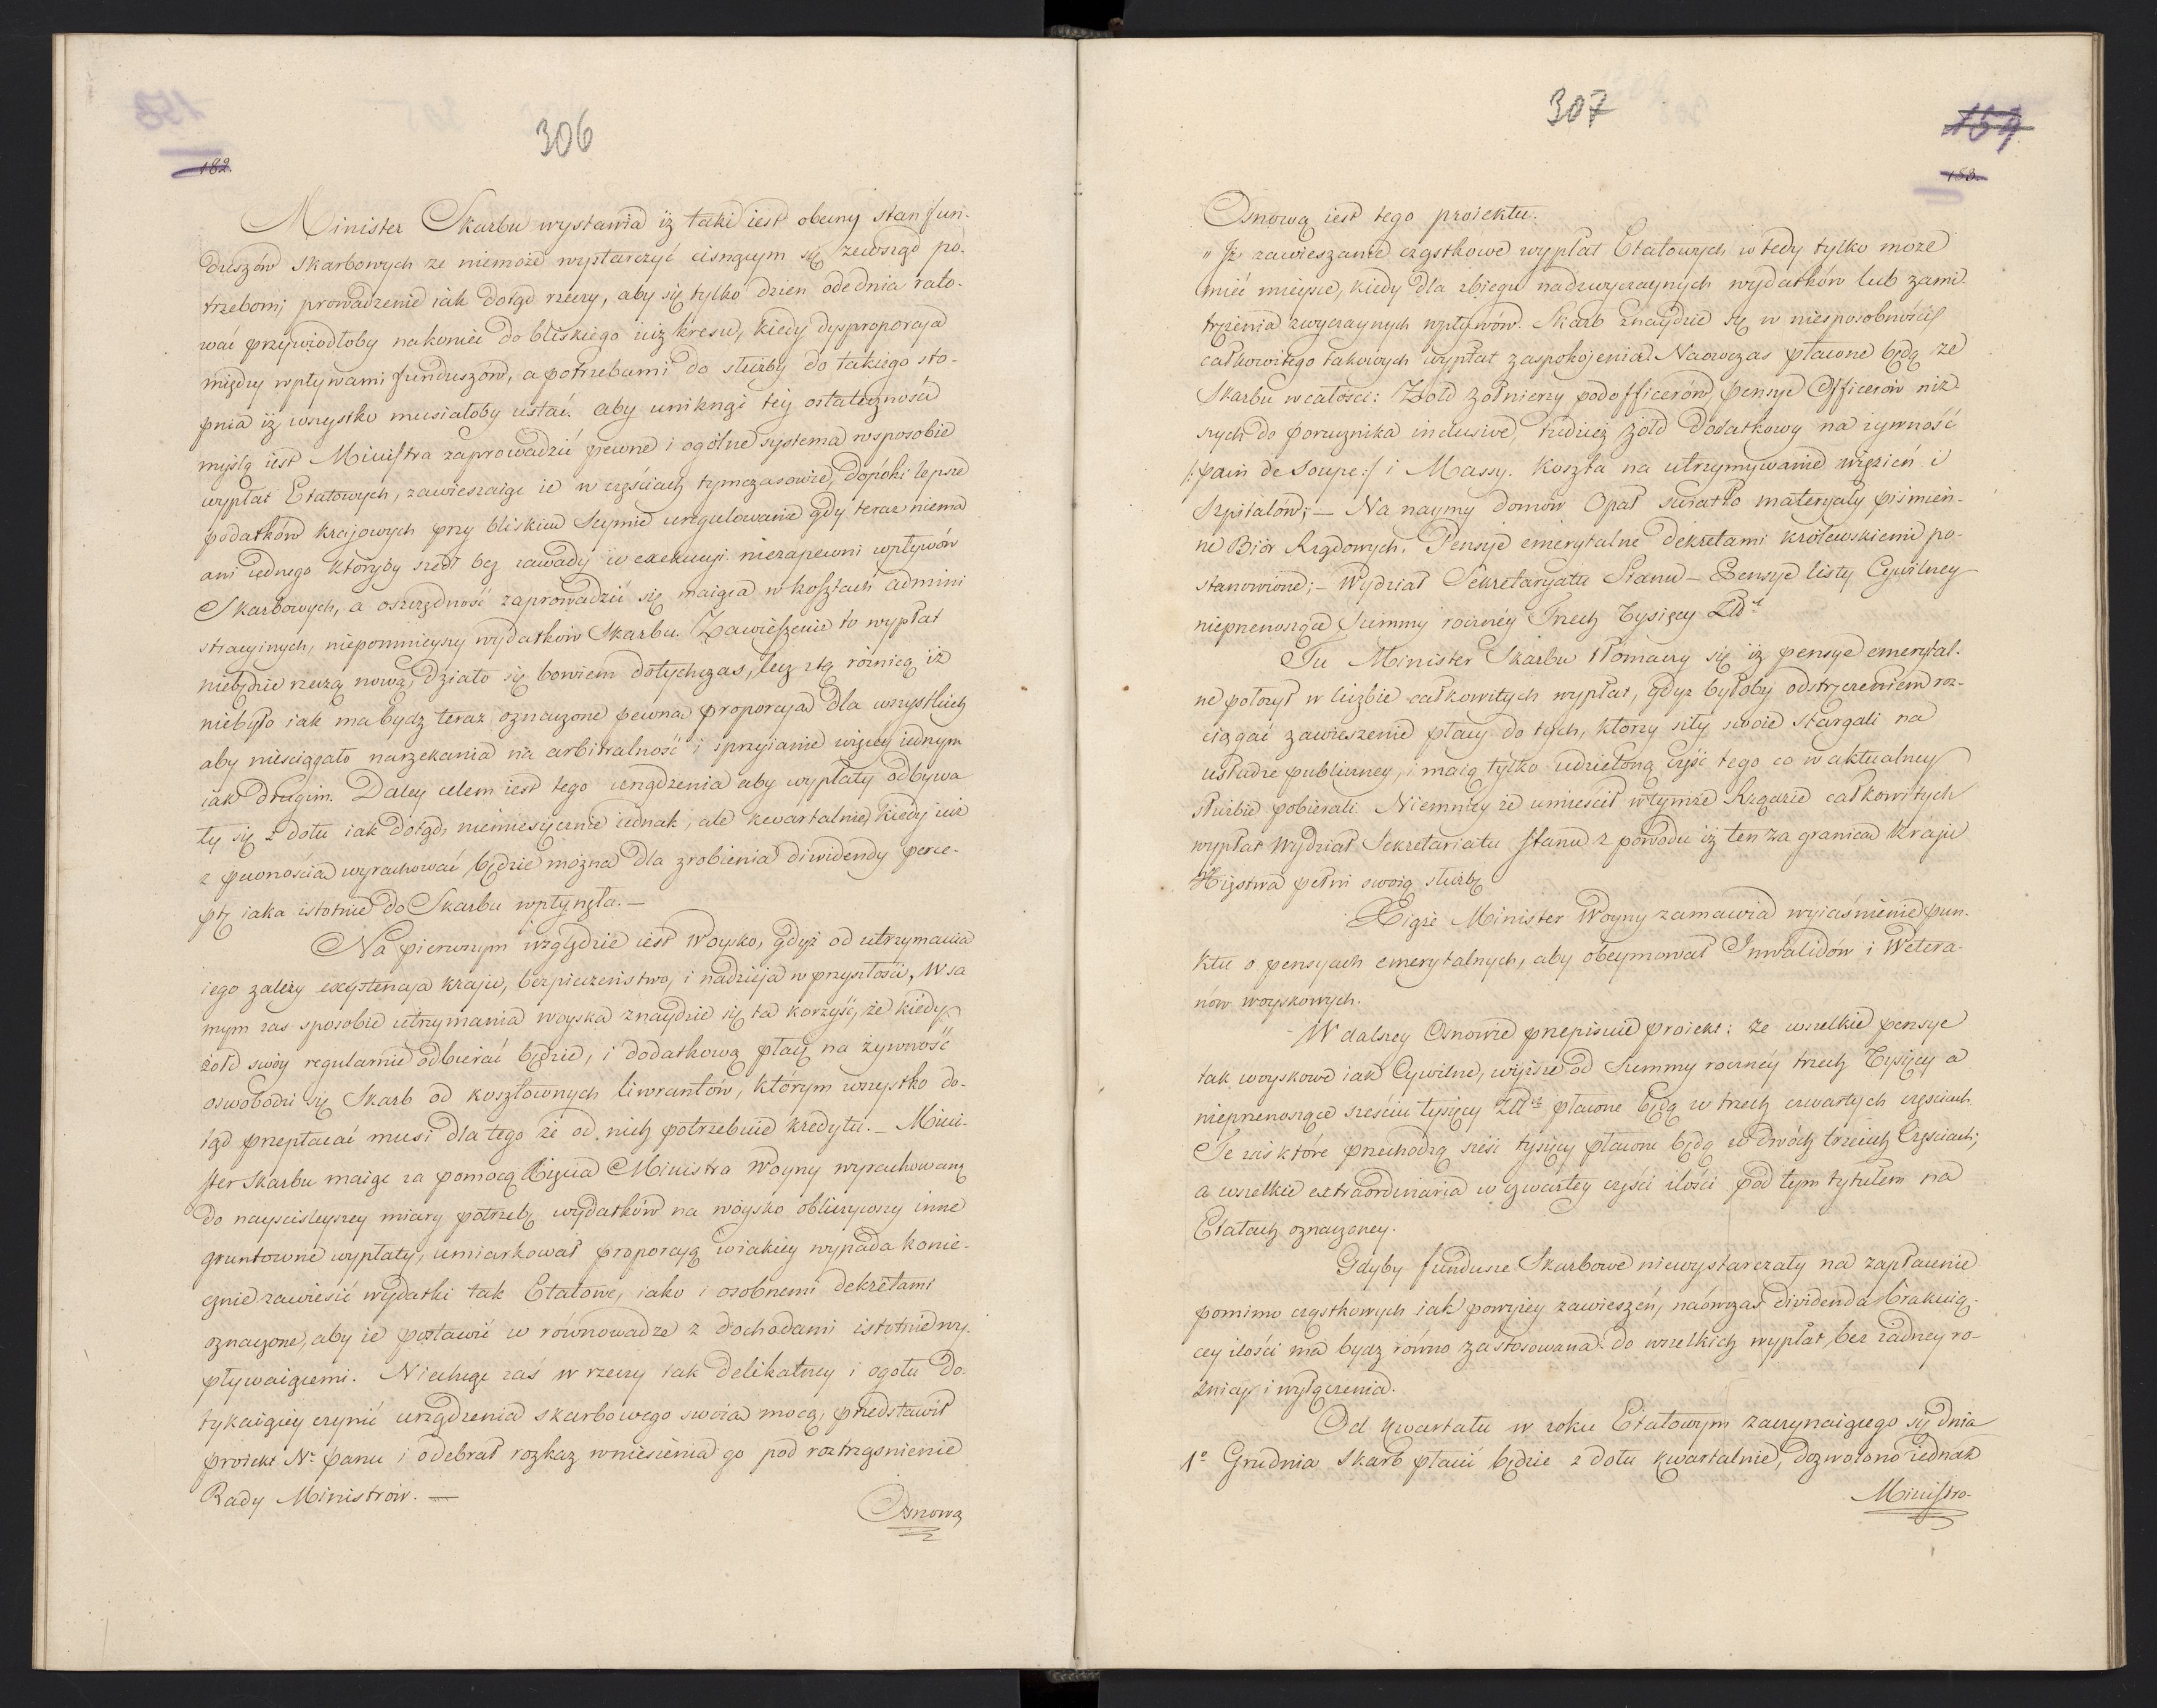 306
182.
Minister Skarbu wystawia iż taki iest obecny stan fun-
duszów Skarbowych ze niemoże wystarczyć cisnącym się zewsząd po-
trzebom; prowadzenie iak dotąd rzeczy, aby się tylko dzien ode dnia rato-
wać przywiodłoby nakoniec do bliskiego iuż kresu, kiedy dysproporcya
między wpływami funduszów, a potrzebami do służby do takiego sto-
pnia iż wszystko musiałoby ustać. aby uniknąć tey ostateczności
myslą iest Ministra zaprowadzić pewne i ogólne systema w sposobie
wypłat Etatowych, zawieszaiąc ie w częściach tymczasowie, dopóki lepsze
podatków krajowych przy bliskim Seymie uregulowanie gdy teraz niema
ani iednego któryby szedł bez zawady i w exekucyi. niezapewni wpływów
Skarbowych, a oszczędność zaprowadzić się maiąca w kosztach admini
stracyinych, niepomnieyszy wydatków Skarbu. Zawieszenie to wypłat
niebędzie rzeczą nową, działo się bowiem dotychczas, lecz z tą róźnicą iż
niebyło iak ma bydz teraz oznaczone pewna proporcya dla wszystkich
aby nieściągało narzekania na arbitralność i sprzyianie więcey iednym
iak drugim. Daley celem iest tego urządzenia aby wypłaty odbywa
ły się z dołu iak dotąd, niemiesięcznie iednak, ale kwartalnie, kiedy iuż
z pewnością wyrachować będzie można dla zrobienia dividendy perce-
ptę iaka istotnie do Skarbu wpłynęła. —
Na pierwszym względzie iest Woysko, gdyż od utrzymania
iego zależy exystencya kraju, bezpieczeństwo, i nadzieja w przyszłości, W sa
mym zas sposobie utrzymania woyska znaydzie się ta korzyść, że kiedy
żołd swóy regularnie odbierać będzie, i dodatkową płacę na żywność
oswobodzi się Skarb od kosztownych liwrantów, którym wszystko do-
tąd przepłacać musi dla tego że od nich potrzebuie kredytu. — Mini-
ster Skarbu maiąc za pomocą Xięcia Ministra Woyny wyrachowaną
do nayscisleyszey miary potrzebę wydatków na woysko obliczywszy inne
gruntowne wypłaty, umiarkował proporcyą w iakiey wypada konie-
cznie zawiesić wydatki tak Etatowe, iako i osobnemi dekretami
oznaczone, aby ie postawić w równowadze z dochodami istotnie wy-
pływaiącemi. Niechcąc zaś w rzeczy tak delikatney i ogołu do-
tykaiącey czynić urządzenia skarbowego swoia mocą, przedstawił
proiekt Nr. panu i odebrał rozkaz wniesienia go pod roztrząsnienie
Rady Ministrów. —
Osnową
307
154
183.
Osnową iest tego proiektu.
„ Iż zawieszanie cząstkowe wypłat Etatowych wtedy tylko może
mieć mieysce, kiedy dla zbiegu nadzwyczaynych wydatków lub zami-
trężenia zwyczaynych wpływów. Skarb znaydzie się w niesposobności
całkowitego takowych wypłat zaspokojenia. Naowczas płacone będą ze
Skarbu w całości: Zołd żołnierzy podofficerów, pensye Officerów niż-
szych do porucznika inclusive, tudzież żołd dodatkowy na zywność
/: pain de Soupe :/ i Massy. Koszta na utrzymywanie więzień i
Szpitalów; — Na naymy domów Opał światło materyały piśmien-
ne Biór Rządowych. Pensye emerytalne dekretami królewskiemi po-
stanowione; — Wydział Sekretaryatu Stanu — Pensye listy Cywilney
nieprzenosząca Summy roczney Trzech Tysięcy Złt
Tu Minister Skarbu tłomaczy się iż pensye emerytal-
ne położył w liczbie całkowitych wypłat, gdyż byłoby odstręczeniem roz-
ciągać zawieszenie płacy do tych, ktorzy siły swoie stargali na
usłudze publiczney, i maią tylko udzieloną część tego co w aktualney
służbie pobierali. Niemniey że umieścił w tymże Rzędzie całkowitych
wypłat Wydział Sekretariatu Stanu z powodu iż ten za granica kraju
Xięstwa pełni swoią służbę
Xiąże Minister Woyny zamawia wyiaśnienie pun-
ktu o pensyach emerytalnych, aby obeymował Inwalidów i Wetera-
nów woyskowych.
W dalszey Osnowie przepisuie proiekt: że wszelkie pensye
tak woyskowe iak Cywilne, wyższe od Summy roczney trzech Tysięcy a
nieprzenoszące sześciu tysięcy Złt płacone będą w trzech czwartych częściach
Te zaś które przechodzą sześć tysięcy płacone będą w dwóch trzecich Częściach;
a wszelkie extraordinaria w czwartey części ilości pod tym tytułem na
Etatach oznaczoney.
Gdyby fundusze Skarbowe niewystarczały na zapłacenie
pomimo cząstkowych iak powyżey zawieszeń, naówczas dividenda brakuią-
cey ilości ma bydz równo zastosowana do wszelkich wypłat, bez żadney ro-
żnicy i wyłączenia.
Od kwartału w roku Etatowym zaczynaiącego się dnia
1o Grudnia Skarb płacić będzie z dołu kwartalnie, dozwolono iednak
Ministro-